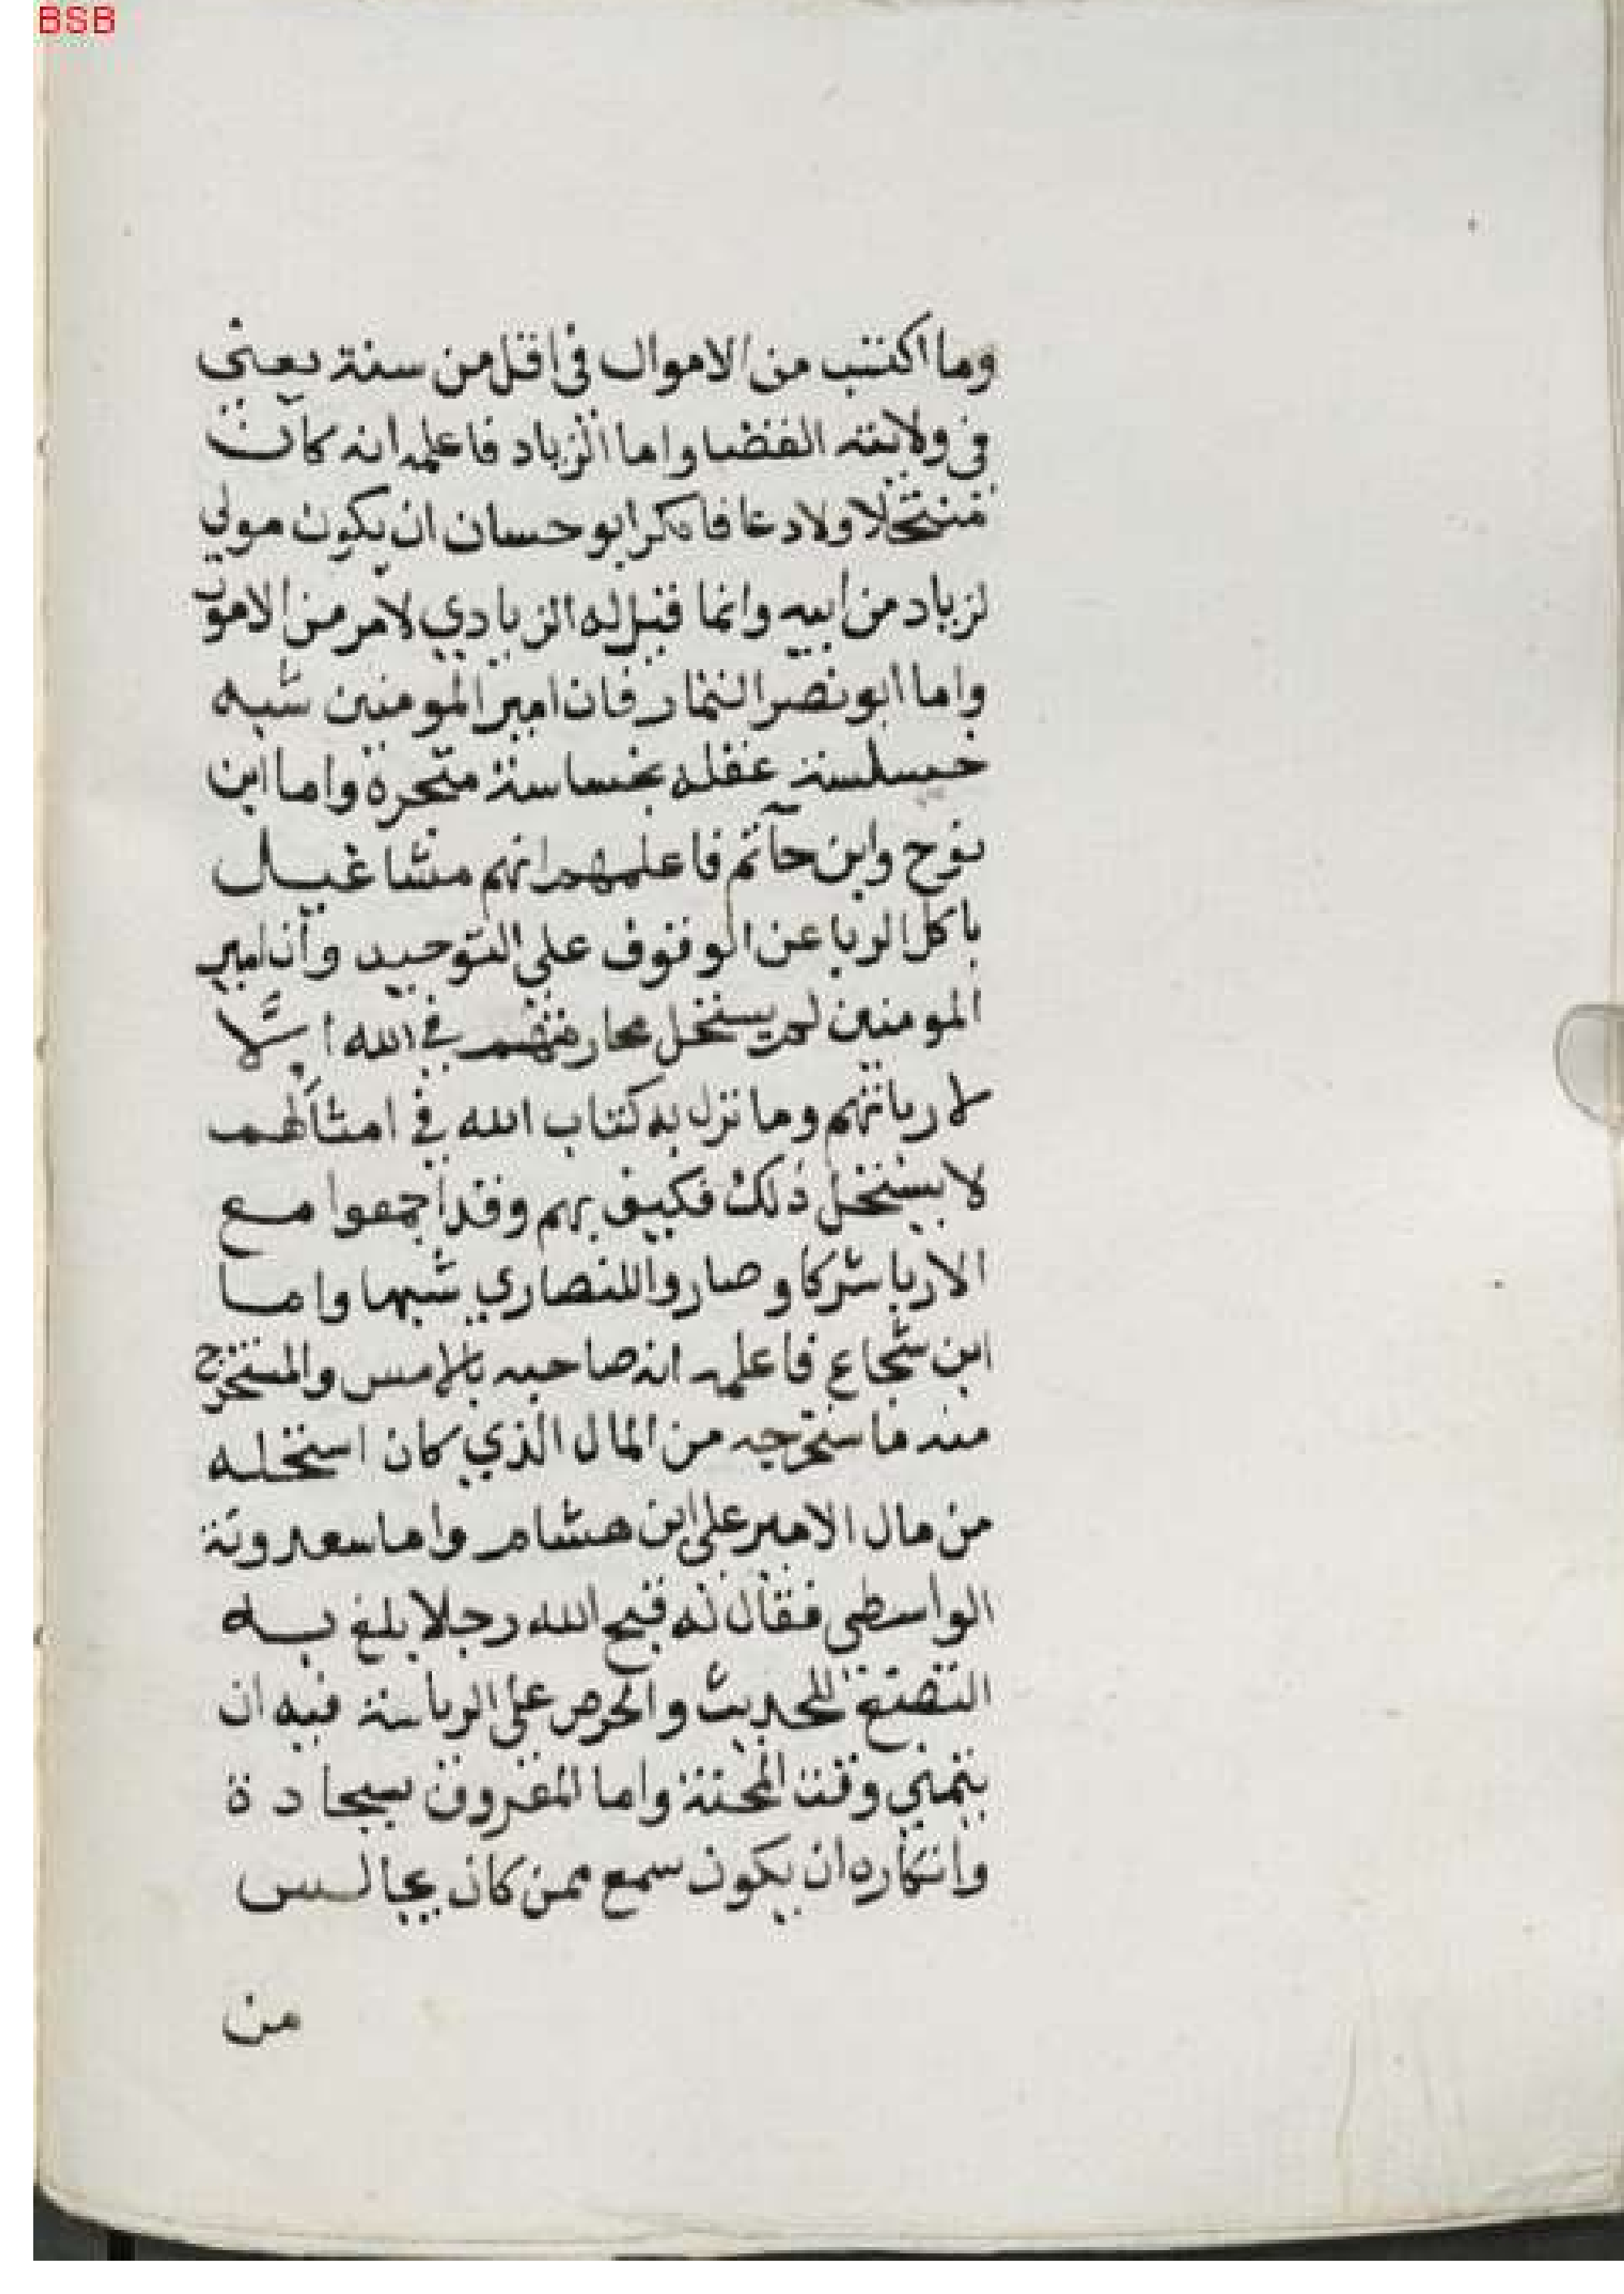 BSB
وما اكتسب من الاموال في اقل من سنة يعني
في ولايته القضا واما الزياد فاعلمه انه كان
منتحلا ولا دعا فانكر ابو حسان ان يكون مولي
لزياد من ابيه وانما قيل له الزيادي لامر من الامور
واما ابو نصر التمار فان امير المومنين شبه
خساسة عقله بخساسة متجره واما ابن
نوح وابن حاتم فاعلمهم انهم مشاغيل
باكل الربا عن الوقوف على التوحيد وان امير
المومنين لم يستحل محاربتهم في الله الا
لاربائهم وما نزل به كتاب الله في امثالهم
لا يستحل ذلك فكيف بهم وقد اجمعوا مع
الاربا شركا وصاروا للنصاري شبها واما
ابن شجاع فاعلمه انه صاحبه بالامس والمستخرج
منه ما ستخرجه من المال الذي كان استحله
من مال الامير علي ابن هشام واما سعدوية
الواسطي فقال له قبح الله رجلا بلغ به
التصنع للحديث والحرص على الرياسة فيه ان
يتمني وقت المحنة واما المعروف بسجادة
وانكاره ان يكون سمع ممن كان يجالس
من